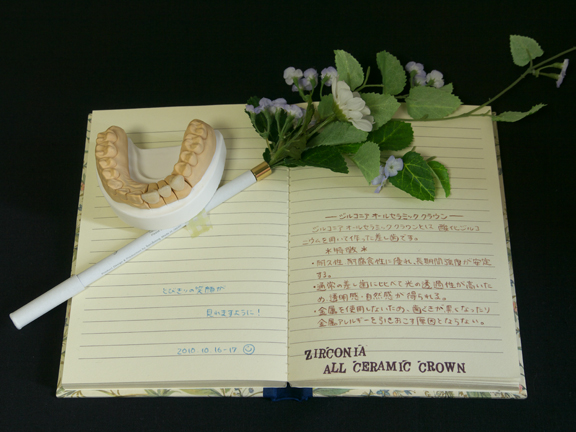 とびきりの笑顔が
見れますように！
2010.10.16-17
ージルコニアオールセラミッククラウンー
ジルコニアオールセラミッククラウンとは、酸化ジルコ
ニウムを用いて作った差し歯です。
＊特徴＊
・耐久性、耐腐食性に優れ、長期間強度が安定
する。
・通常の差し歯にくらべて光の透過性が高いた
め透明感・自然感が得られます。
・金属を使用しないため、歯ぐきが黒くなったり
金属アレルギーを引きおこす原因とならない。
ZIRCONIA
ALL CERAMIC CROWN